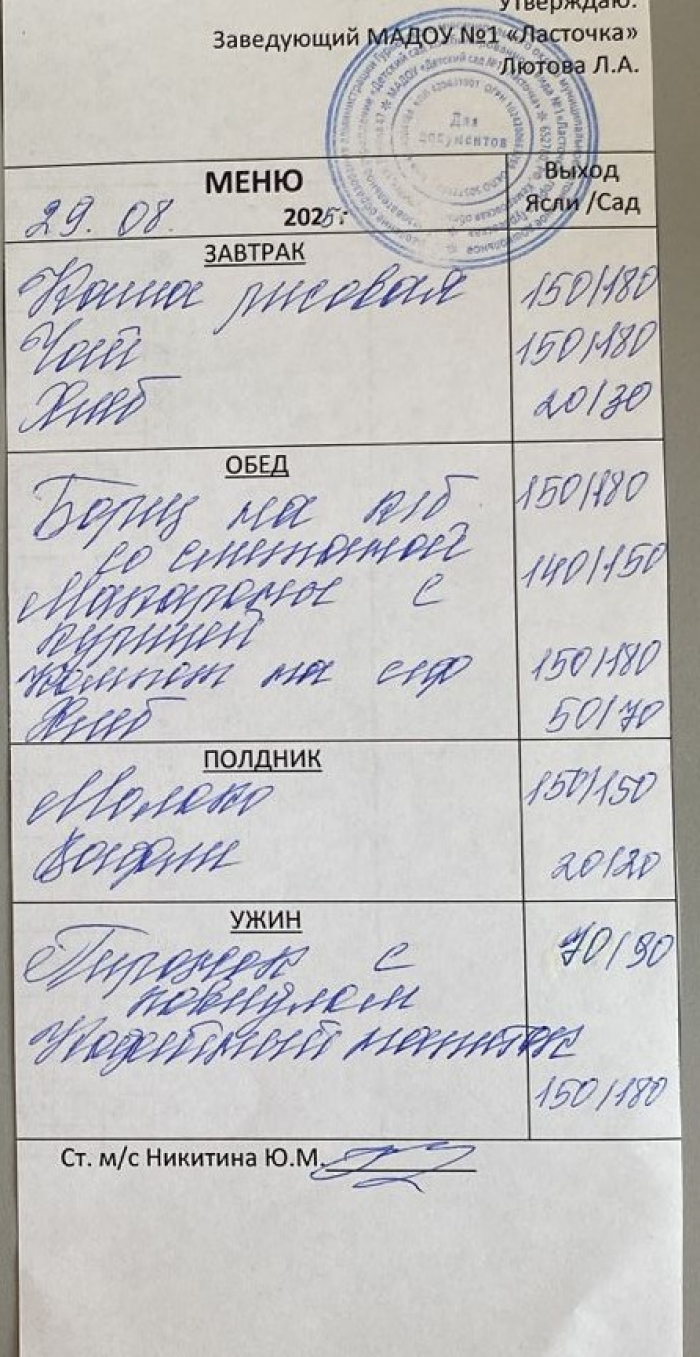 Утверждаю:
Заведующий МАДОУ №1 «Ласточка»
Лютова Л.А.
Для
документов
МЕНЮ
Выход
Ясли /Сад
29. 08. 2025г
ЗАВТРАК
Каша рисовая 150/180
Чай 150/180
Хлеб 20/30
ОБЕД
Борщ на к/б 150/180
со сметаной
Макароны с 140/150
курицей
Компот из с/ф 150/180
Хлеб 50/70
ПОЛДНИК
Молоко 150/150
Вафли 20/20
УЖИН
Пирожок с 70/90
повидлом
напиток
150/180
Ст. м/с Никитина Ю.М.